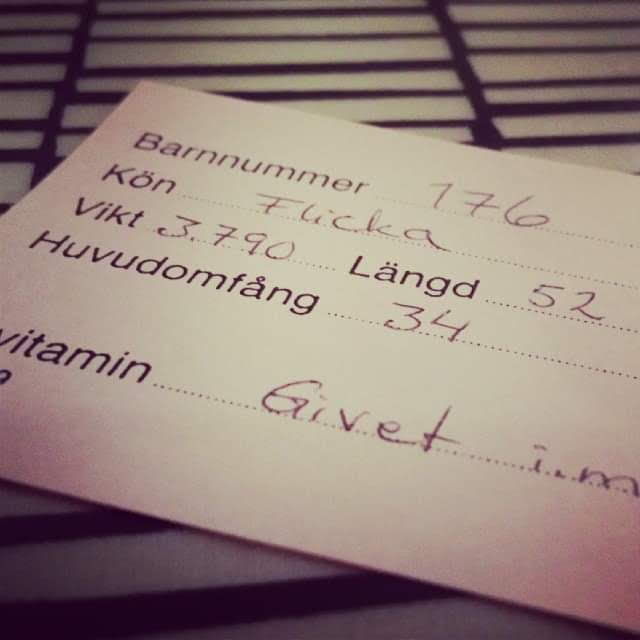 Barnnummer 176
Kön Flicka
Vikt 3.790 Längd 52
Huvudomfång 34
vitamin Givet i.m